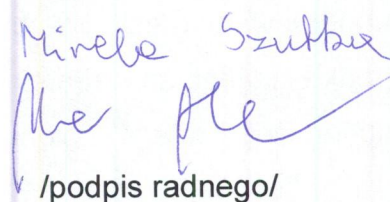 Mirela Szutka
/podpis radnego/